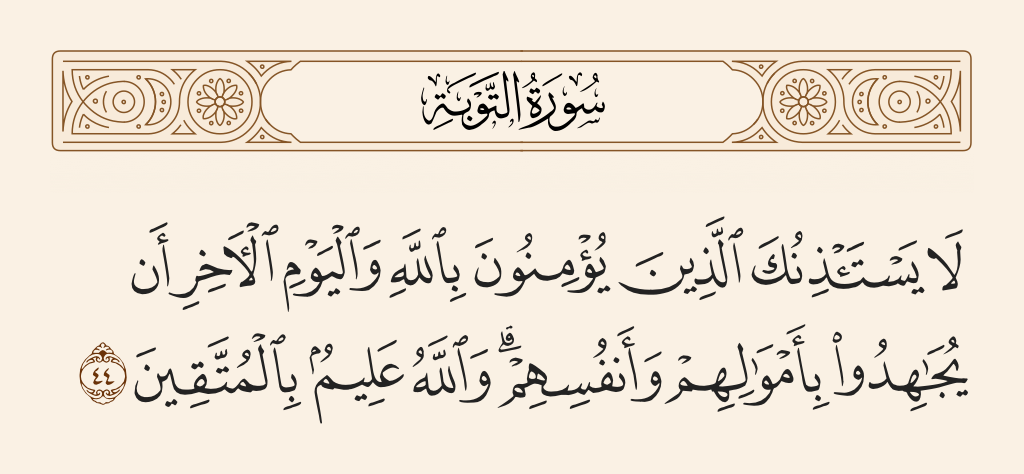 سُورَةُ التَّوْبَةِ
لَا يَسْتَـْٔذِنُكَ ٱلَّذِينَ يُؤْمِنُونَ بِٱللَّهِ وَٱلْيَوْمِ ٱلْـَٔاخِرِ أَن
يُجَـٰهِدُوا۟ بِأَمْوَٰلِهِمْ وَأَنفُسِهِمْ ۗ وَٱللَّهُ عَلِيمٌۢ بِٱلْمُتَّقِينَ ٤٤